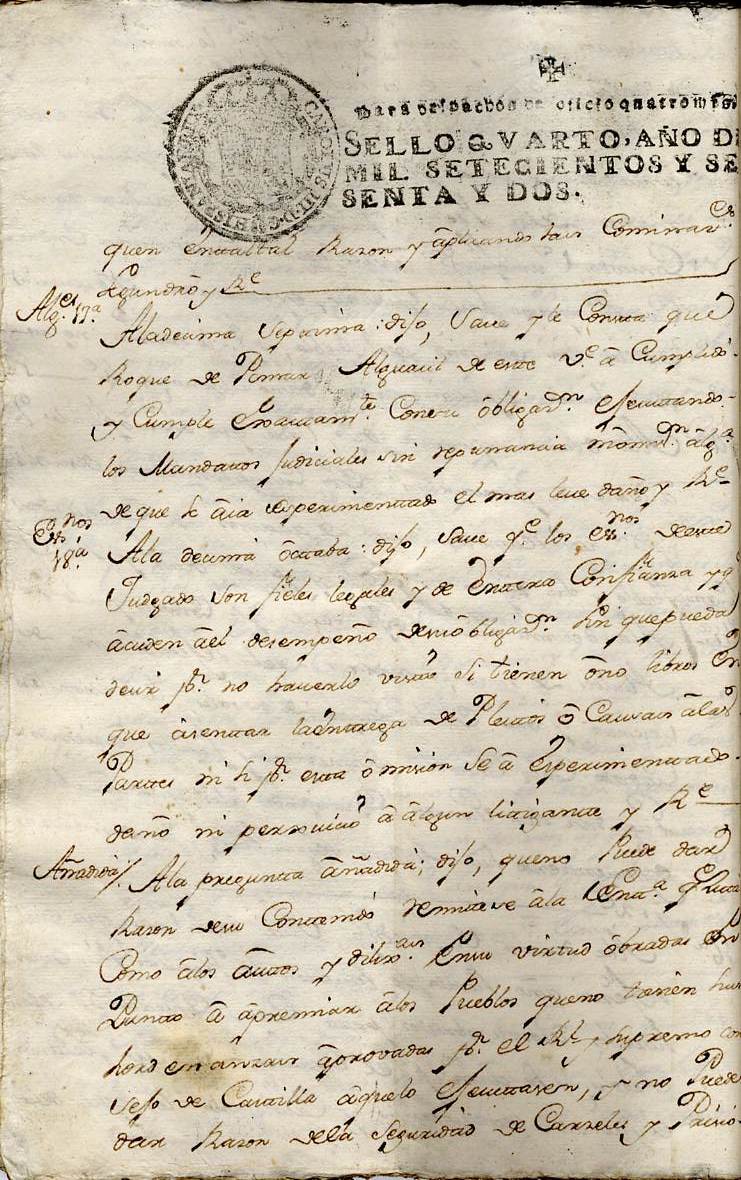 Para despachos de oficio quatro mrs
SELLO QVARTO, AÑO DE
MIL SETECIENTOS Y SE
SENTA Y DOS.
CAROLUS III D G HISPANIAR REX
quen en tal Razon y aplicando
y Re
Alges 17a
Aladecima septima: dijo, Save y le Consta que
Roque de Pomar Alguacil de este Ve a Cumplido
y Cumple Exactamte Con su obligazn Executando
los Mandatos Judiciales sin repunancia algª
de que se aia experimentado el mas leve daño y Re
Essnos 18a
Ala decima octaba: dijo, Save qe los essnos de este
Judgado son fieles legales y de Entera Confianza y q
acuden a el desempeño de su obligazn sin que pueda
decir pr no haverlo visto si tienen o no libros En
que asentar la Entrega de Pleitos o Causas a las
Partes ni si pr esta omision se a Experimentado
daño ni perjuicio a algun litigante y Re
Añadida/.
Ala pregunta añadida; dijo, queno Puede dar
Razon de su Contenido remitese a la
Como a los autos y dilixas En su virtud obradas En
Punto a apremiar a los Pueblos queno tienen sus
hordenanzas aprovadas pr el Rl y Supremo con
sejo de Castilla a quelo Executasen, y no Puede
dar Razon dela Seguridad de Carzeles y Prisio